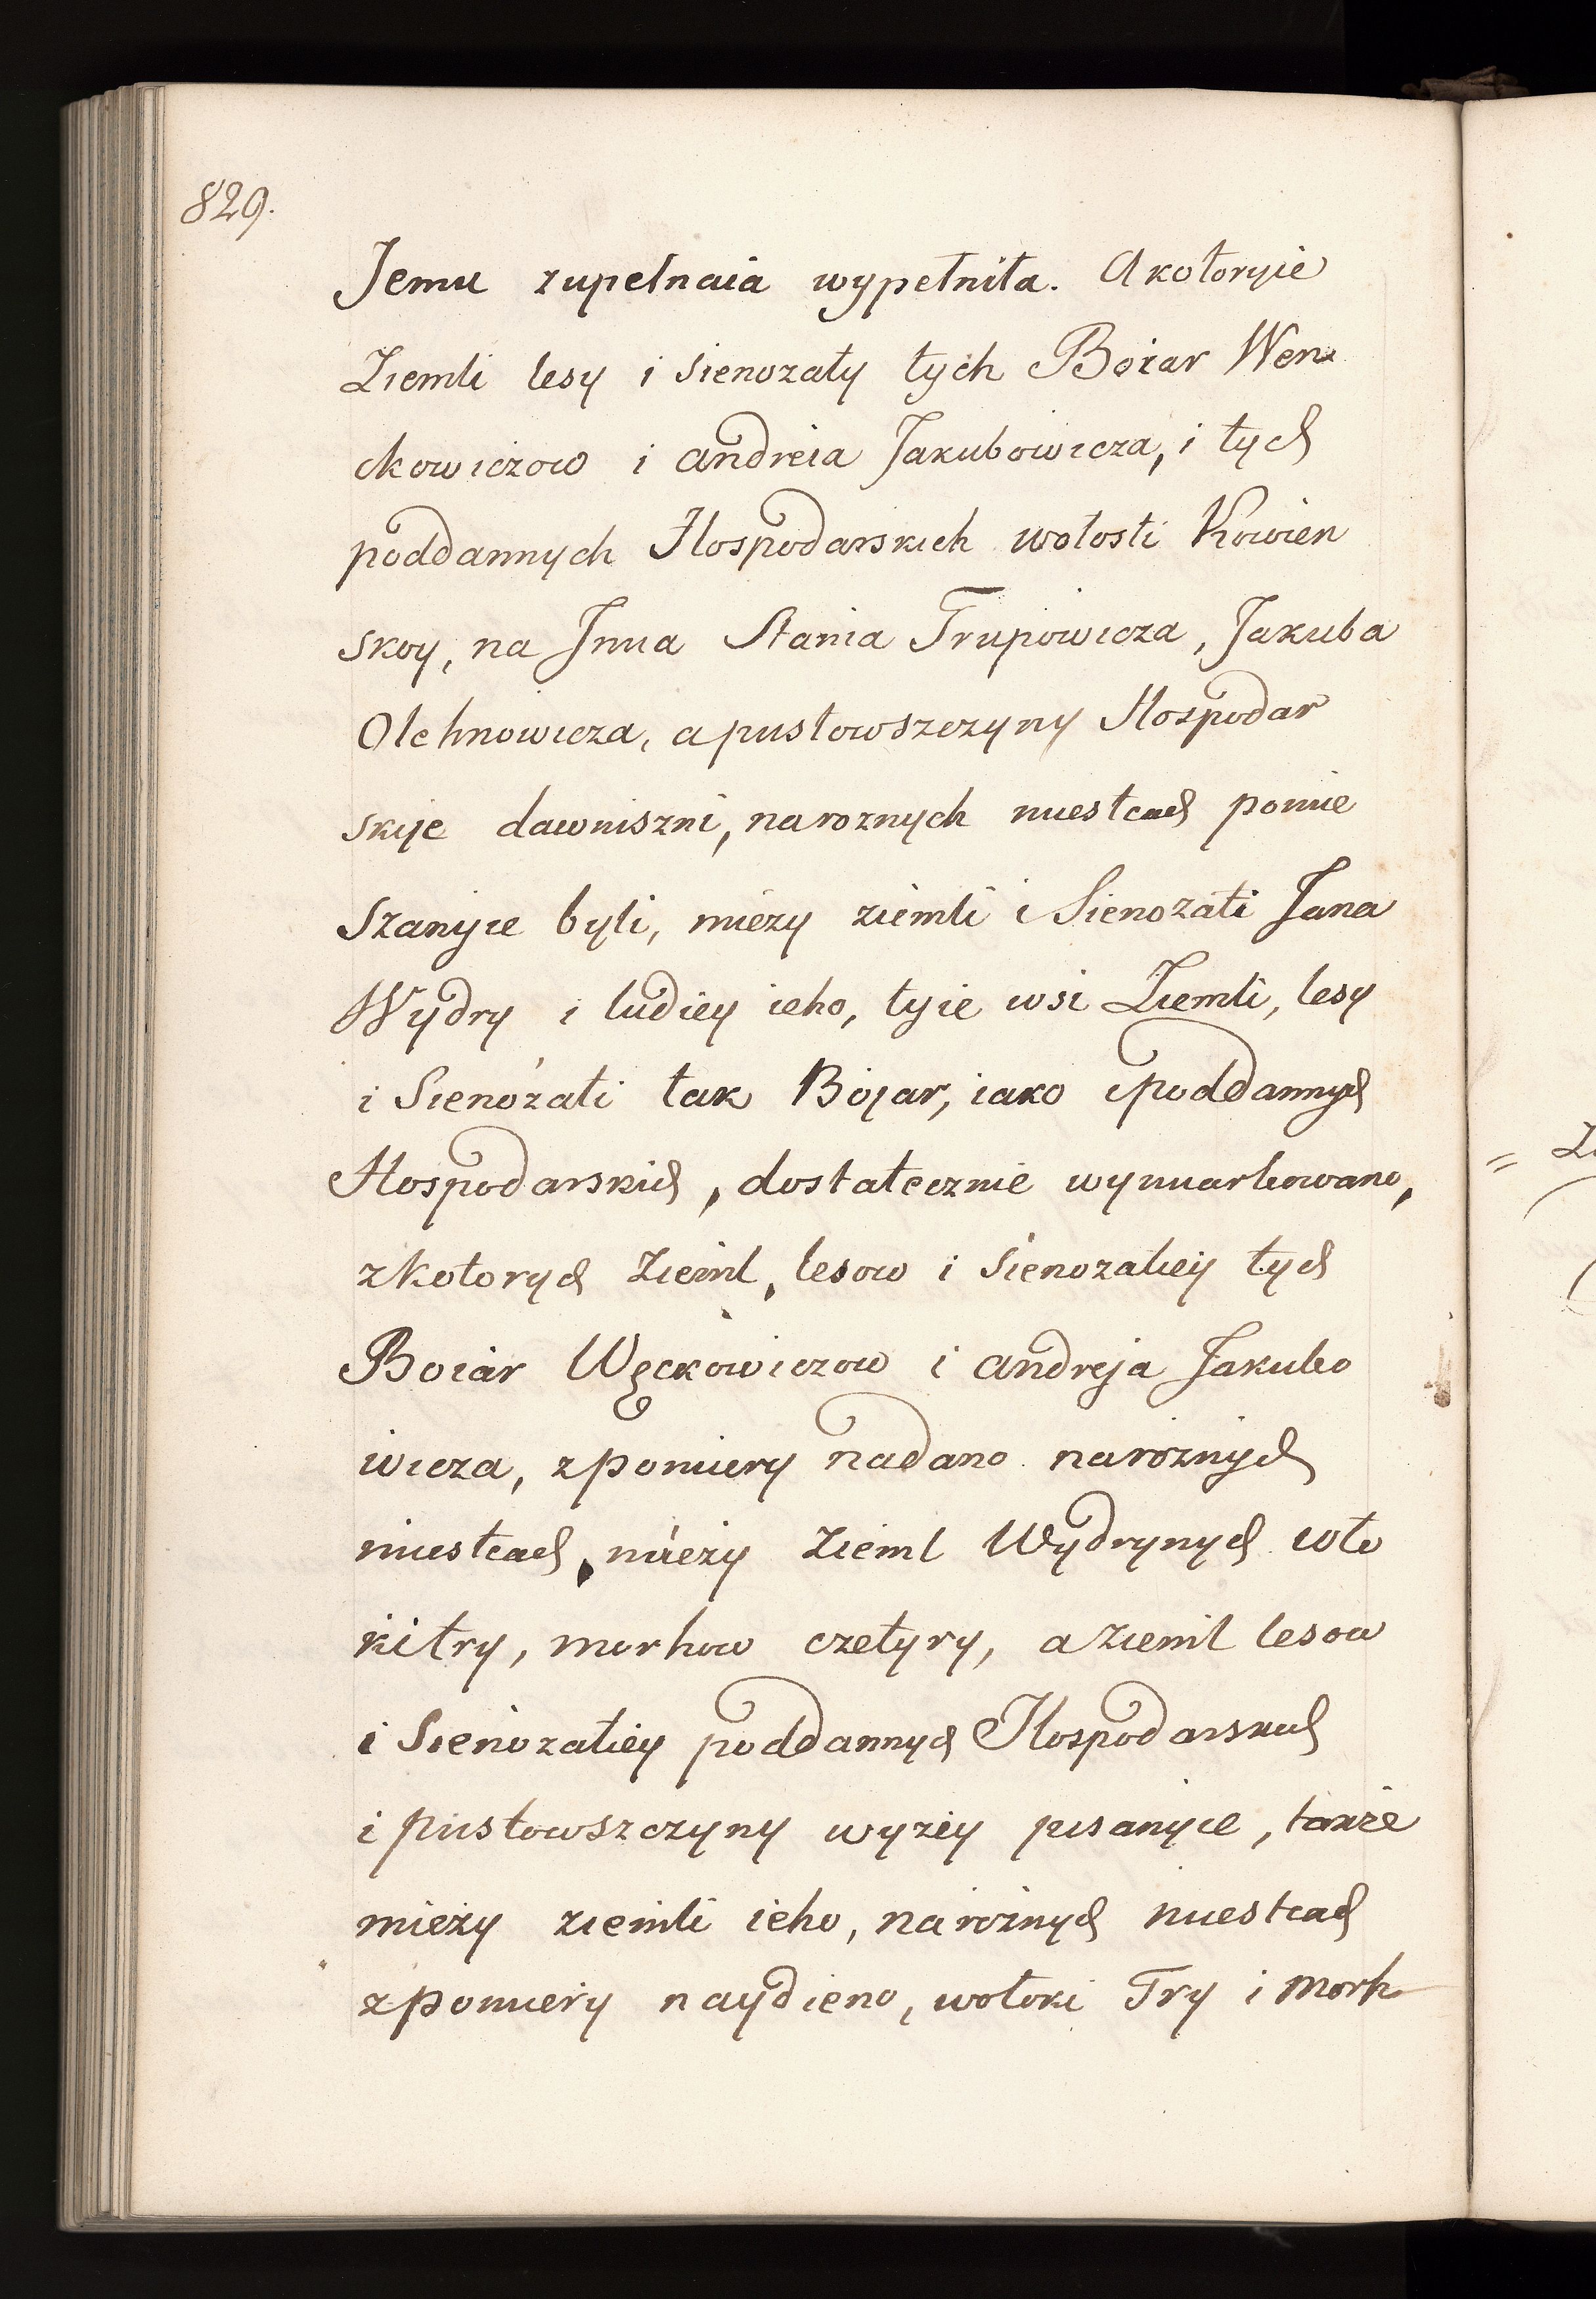 829.
Jemu zupełnaia wypełniła. A kotoryie
Ziemli lesy i sienozaty tych Boiar Wen
ckowiczow i andreia Jakubowicza, i tych
poddannych Hospodarskich wołosti Kowien
skoy, na Imia Stania Trupowicza, Jakuba
Olehnowicza, a pustowszczyny Hospodar
skije dawniszni, na roznych miestcach pomie
szanyie byli, miezy ziemli i Sienozati Jana
Wydry i ludiey ieho, tyie wsi Ziemli, lesy
i Sienozati tak Boiar, iako i poddannych
Hospodarskich, dostatecznie wymiarkowano,
z kotorych Zieml, lesow i Sienozatiey tych
Boiar Węckowiczow i andreja Jakubo
wicza, z pomiery nadano na roznych
miestcach, miezy Zieml Wydrynych woło
ki try, morhow czetyry, a Zieml lesow
i Sienozatiey poddannych Hospodarskich
i pustowszczyny wyzey pisanyie, takze
miezy ziemli ieho, na roznych miestcach
z pomiery naydieno, wołoki Try i Morh